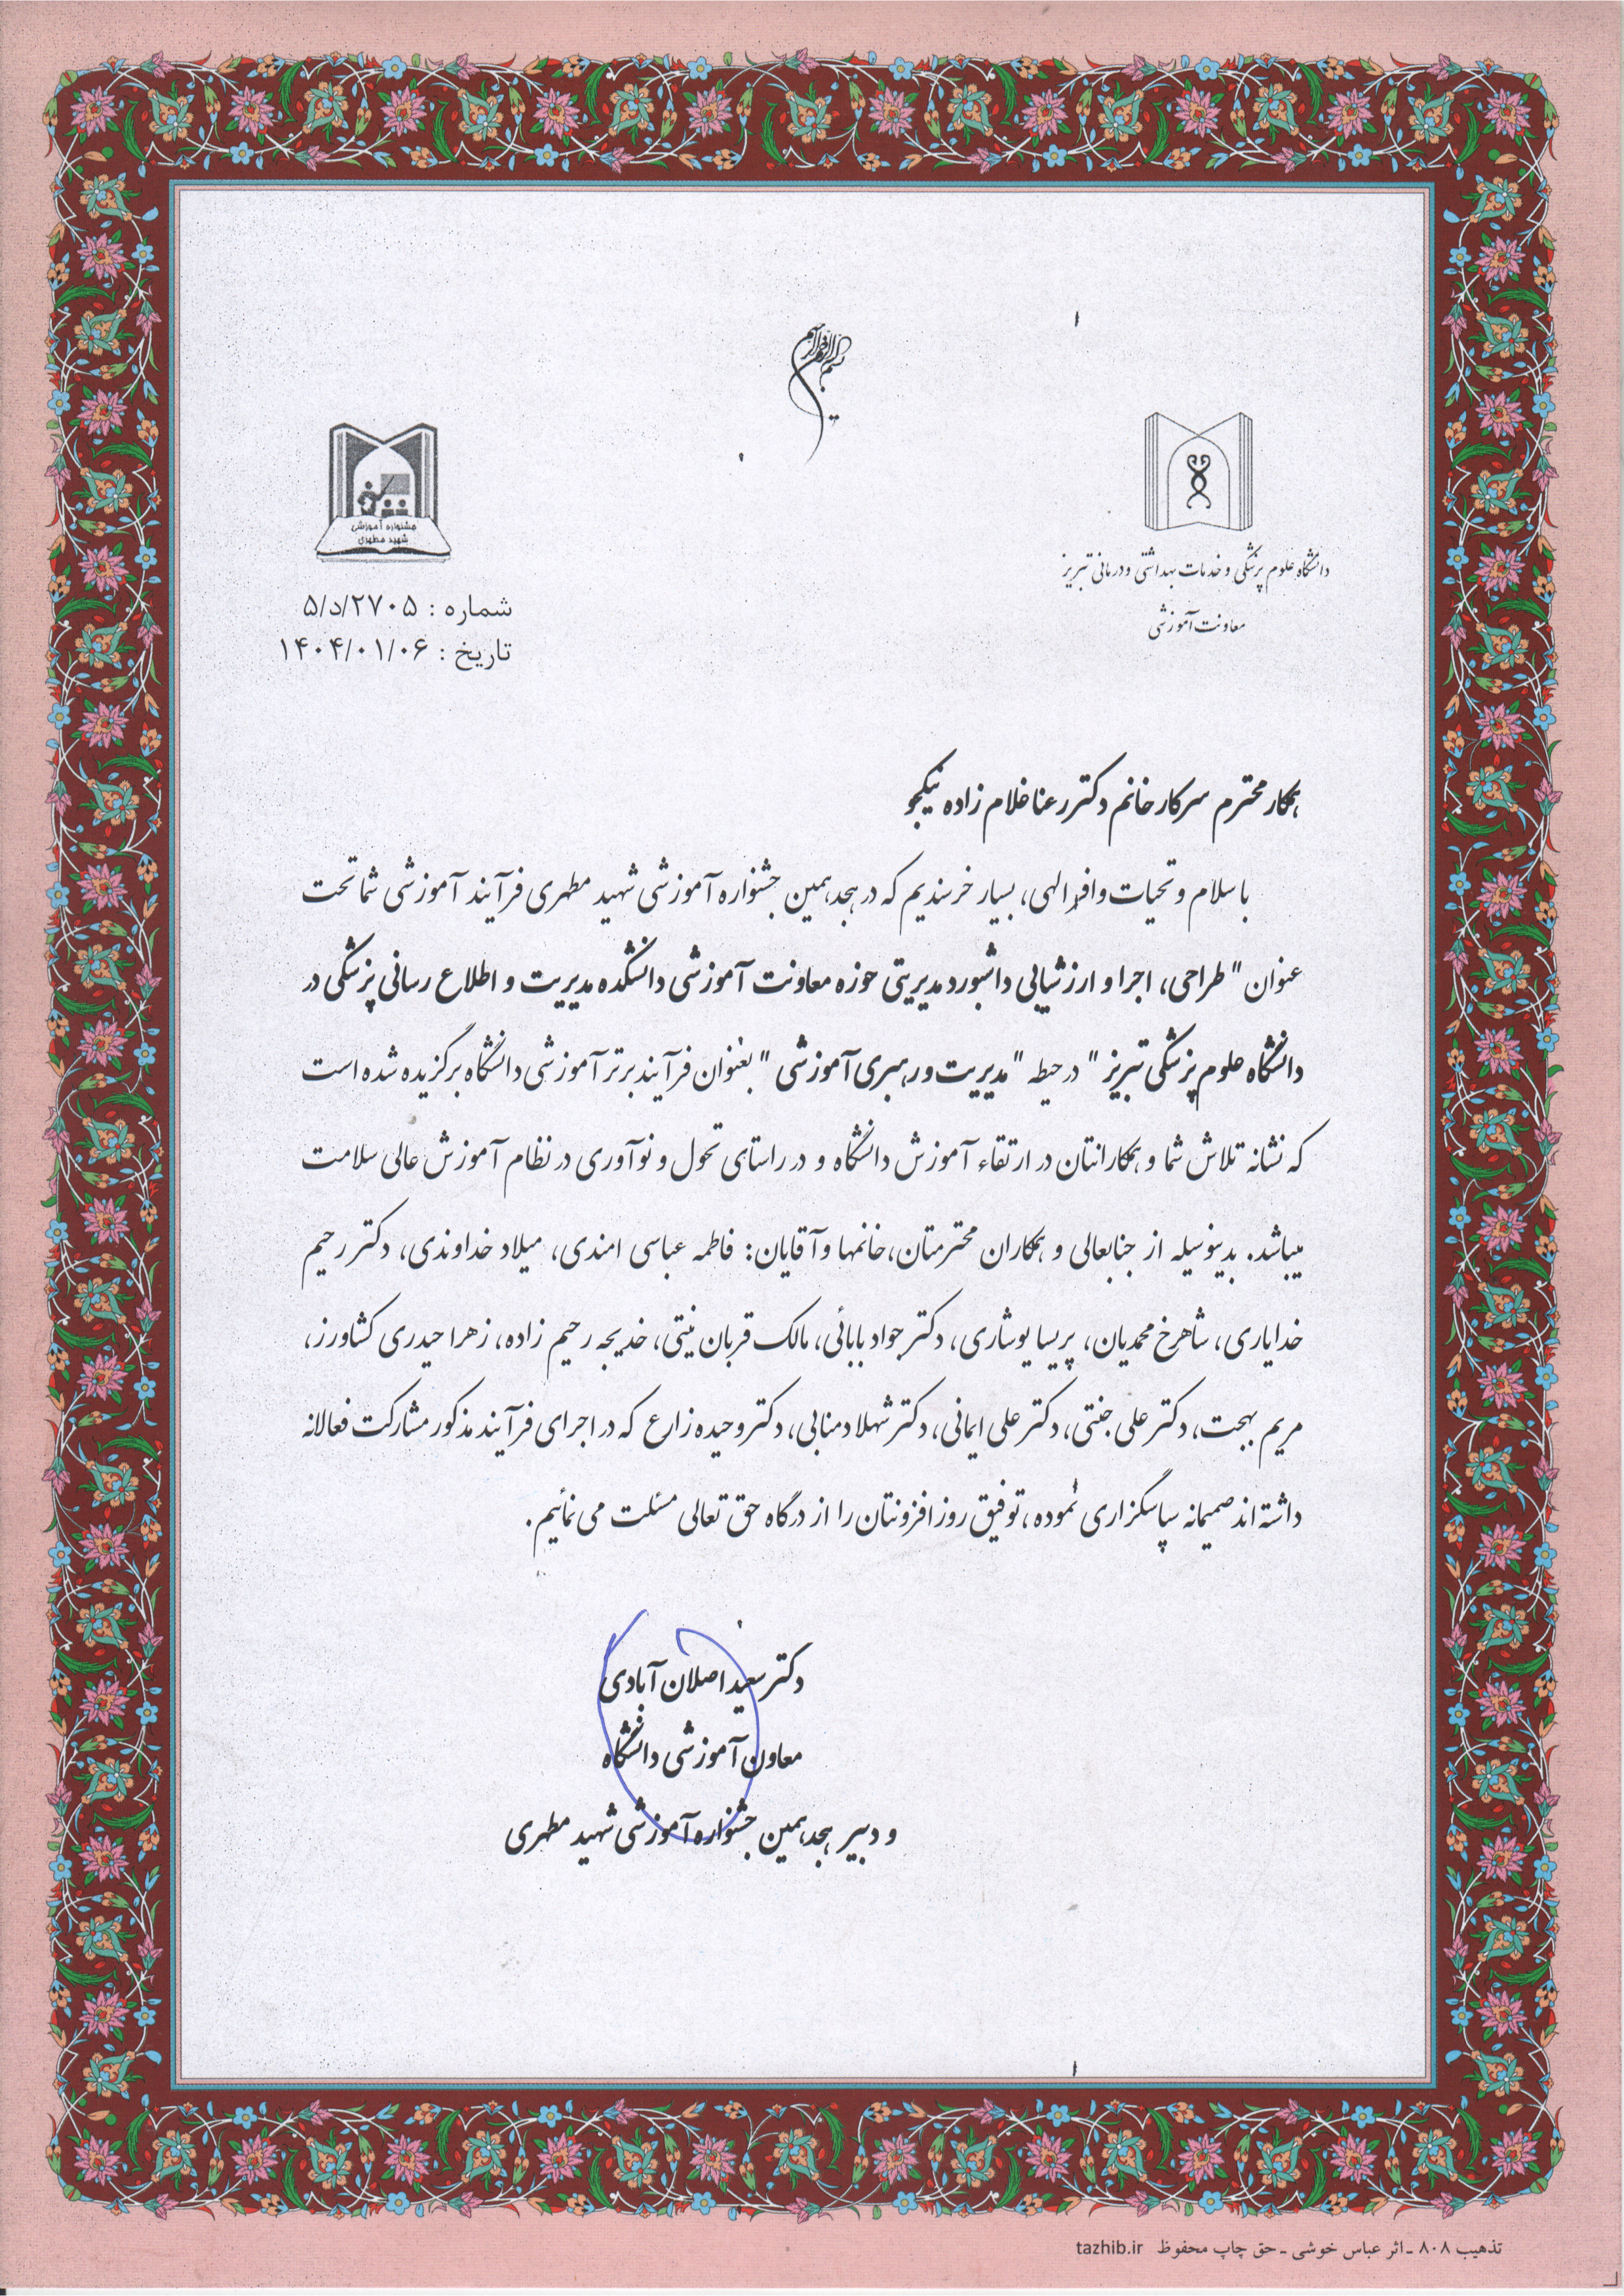 بسم الله الرحمن الرحیم
جشنواره آموزشی
شهید مطهری
دانشگاه علوم پزشکی و خدمات بهداشتی و درمانی تبریز
معاونت آموزشی
شماره : ۵/د/۲۷۰۵
تاریخ : ۱۴۰۴/۰۱/۰۶
همکار محترم سرکار خانم دکتر رعنا غلام زاده نیکجو
با سلام و تحیات وافر الهی، بسیار خرسندیم که در هجدهمین جشنواره آموزشی شهید مطهری فرآیند آموزشی شما تحت
عنوان " طراحی، اجرا و ارزشیابی داشبورد مدیریتی حوزه معاونت آموزشی دانشکده مدیریت و اطلاع رسانی پزشکی در
دانشگاه علوم پزشکی تبریز " در حیطه " مدیریت و رهبری آموزشی " بعنوان فرآیند برتر آموزشی دانشگاه برگزیده شده است
که نشانه تلاش شما و همکارانتان در ارتقاء آموزش دانشگاه و در راستای تحول و نوآوری در نظام آموزش عالی سلامت
میباشد. بدینوسیله از جنابعالی و همکاران محترمتان، خانمها و آقایان: فاطمه عباسی امندی، میلاد خداوندی، دکتر رحیم
خدایاری، شاهرخ محمدیان، پریسا یوشاری، دکتر جواد بابائی، مالک قربان نیتی، خدیجه رحیم زاده، زهرا حیدری کشاورز،
مریم بهجت، دکتر علی جنتی، دکتر علی ایمانی، دکتر شهلا دمنابی، دکتر وحیده زارع که در اجرای فرآیند مذکور مشارکت فعالانه
داشته اند صمیمانه سپاسگزاری نموده، توفیق روز افزونتان را از درگاه حق تعالی مسئلت می نمائیم.
دکتر سعید اصلان آبادی
معاون آموزشی دانشگاه
و دبیر هجدهمین جشنواره آموزشی شهید مطهری
تذهیب ۸۰۸ ـ اثر عباس خوشی ـ حق چاپ محفوظ tazhib.ir